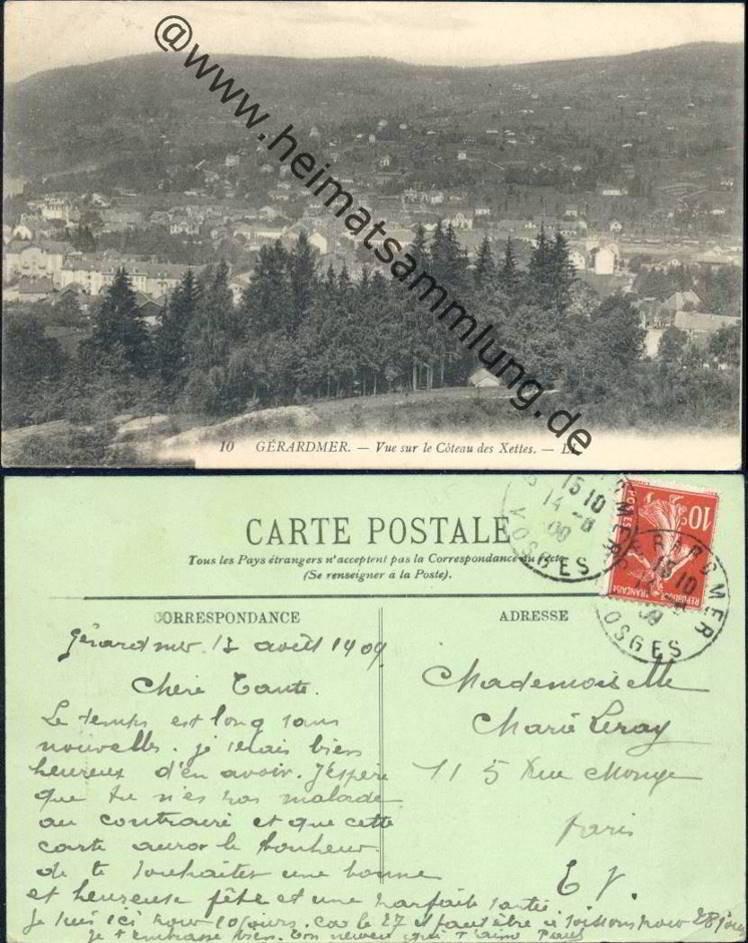 @www.heimatsammlung.de
10 GÉRARDMER. — Vue sur le Côteau des Xettes. — LL.
CARTE POSTALE
Tous les Pays étrangers n'acceptent pas la Correspondance au recto
(Se renseigner à la Poste).
GÉRARDMER
15 10
14 -8
09
VOSGES
10c
POSTES
REPUBLIQUE FRANÇAISE
GERARDMER
15 10
14 -8
09
VOSGES
CORRESPONDANCE
Gérardmer 13 août 1909
Chère Tante.
Le temps est long sans
nouvelles. je serais bien
heureux d'en avoir. J'espère
que tu n'es pas malade
au contraire et que cette
carte auror le bonheur
de te souhaiter une bonne
et heureuse fête et une parfaite santé
Je suis ici pour 10 jours. car le 27 il faut être à Soissons pour 28 jours
Je t'embrasse bien. Ton neveu qui t'aime
ADRESSE
Mademoiselle
Marie Leray
115 Rue Monge
Paris
E V.